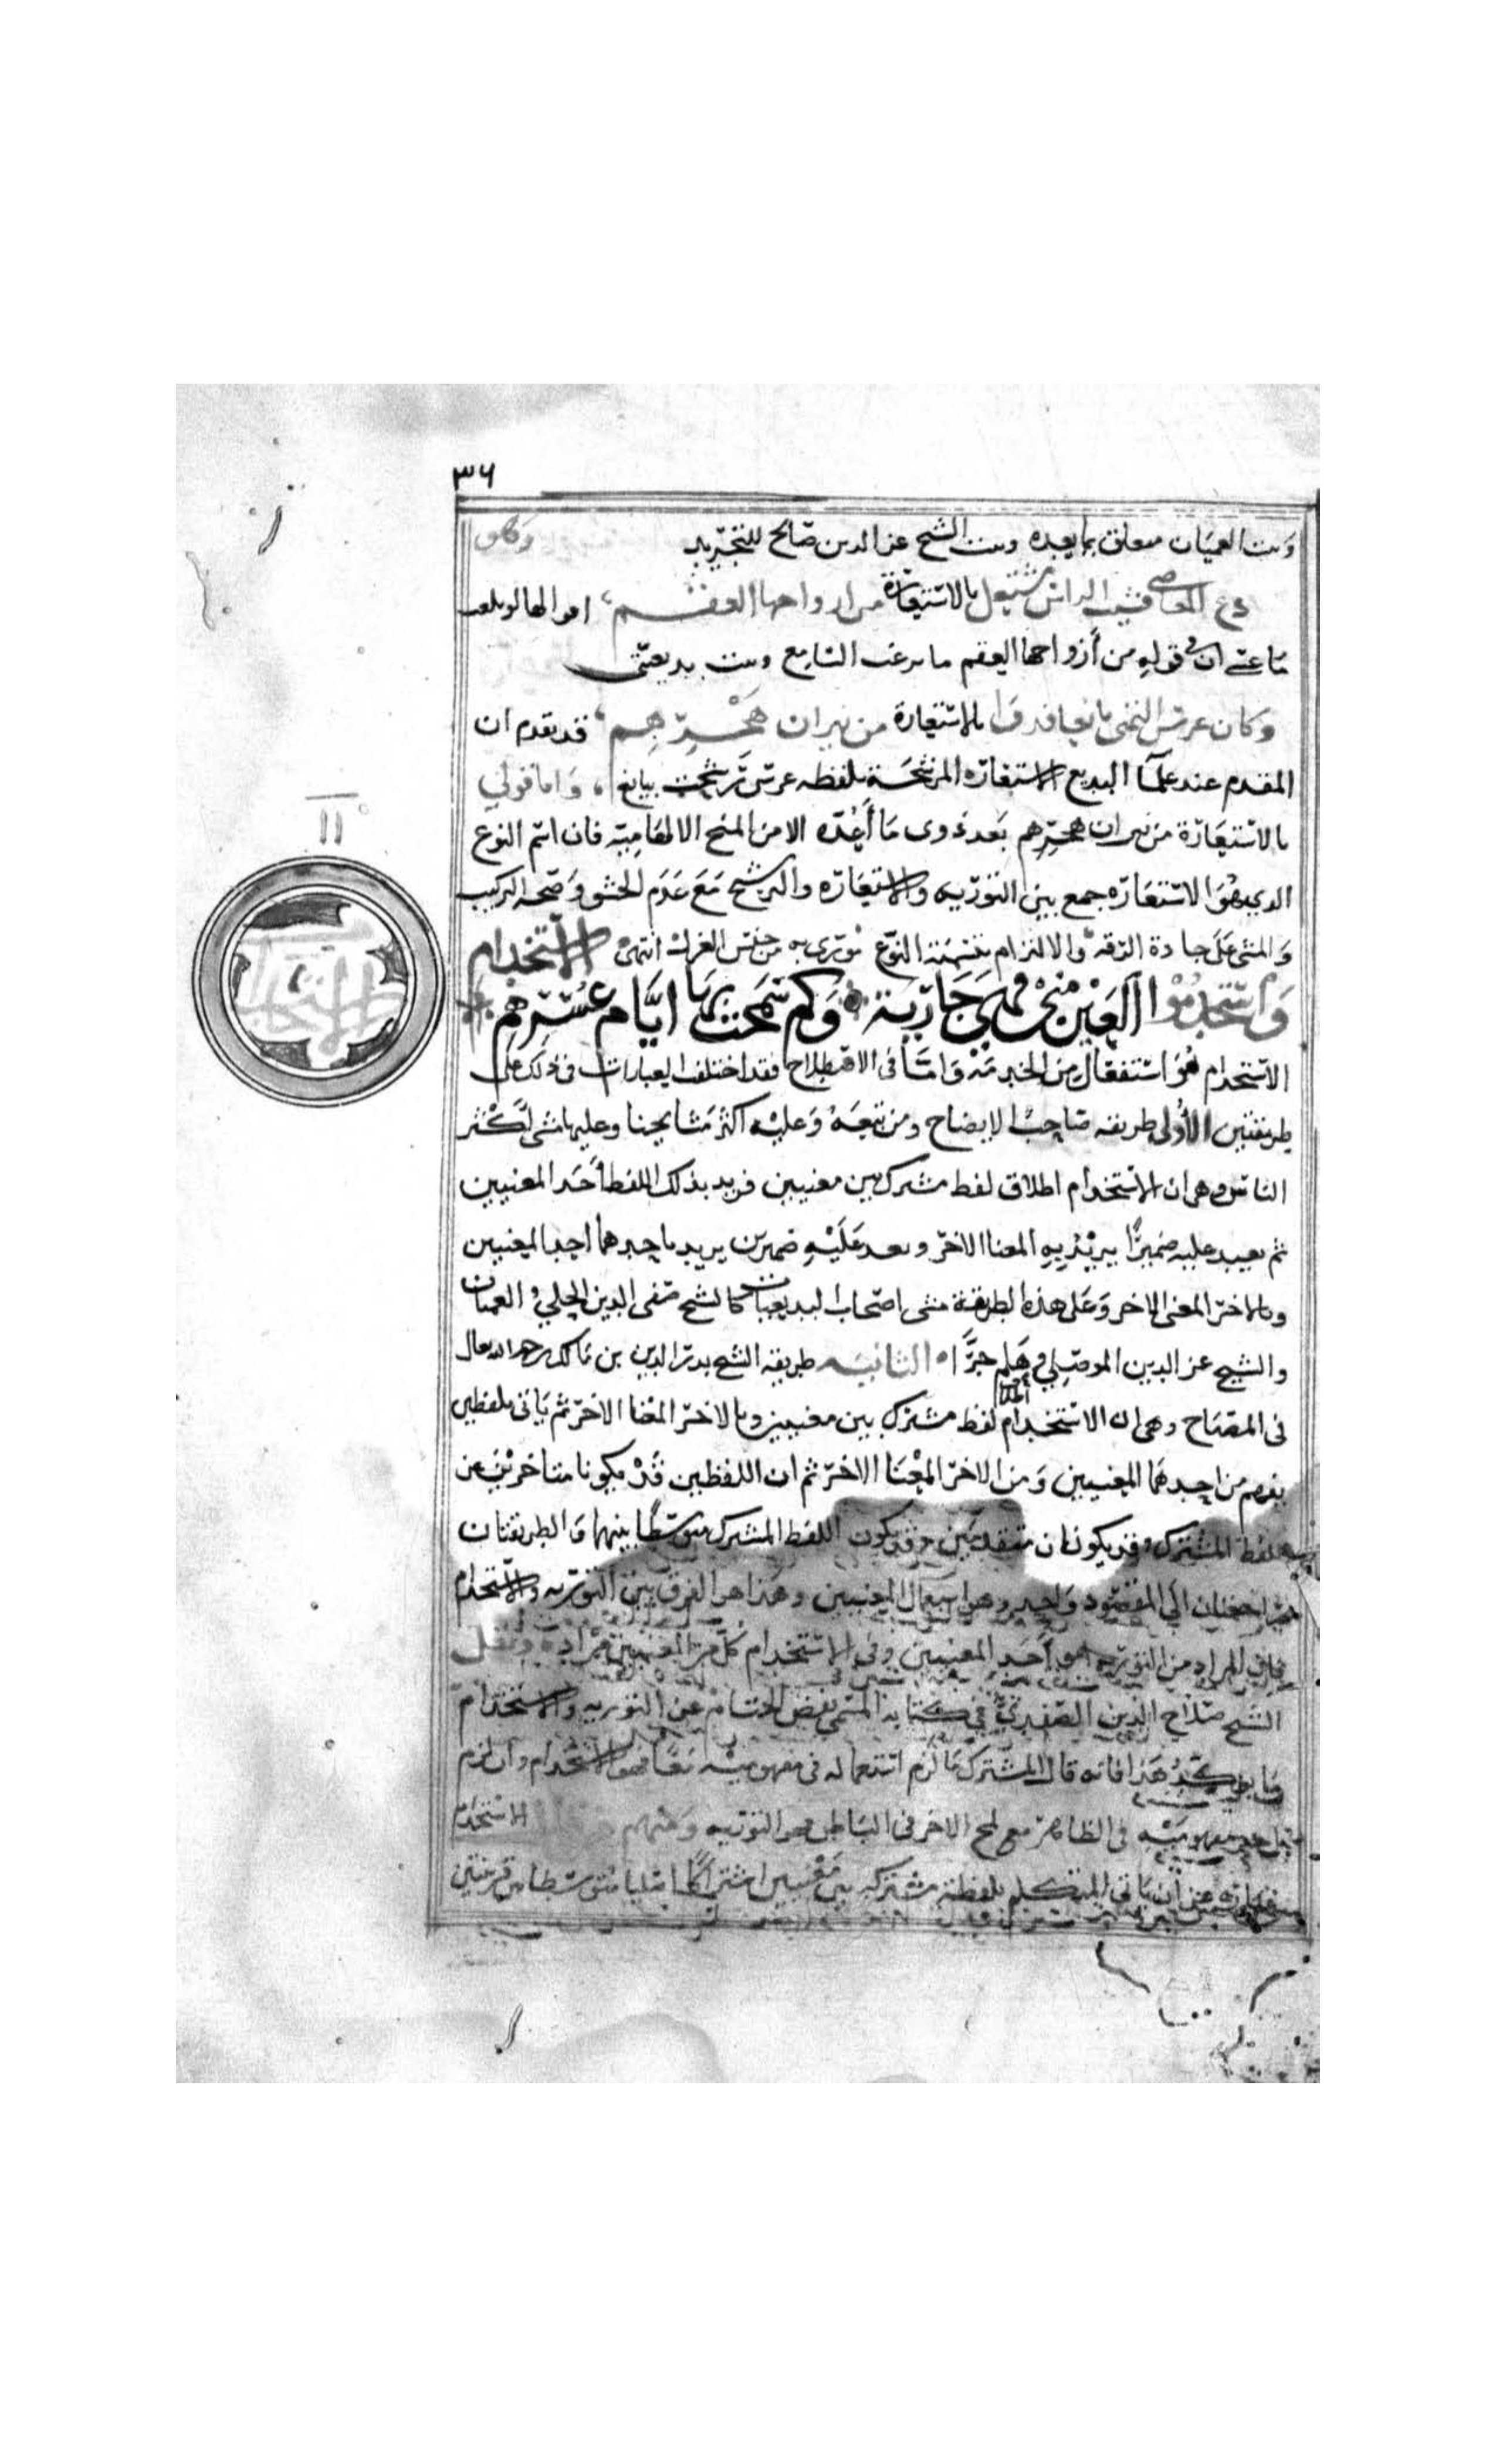 ٣٦
وبيت العميان متعلق بما بعده وبيت الشيخ عز الدين صالح للتجريد
دع المعاصي فشيب الراس مشتعل بالاستعارة من ازواجها العقم، اقوالها لو بلغت
ما عسى ان في قوله من أزواجها العقم ما يرغب السامع وبيت بديعيتي
وكان غرس التمني يانعا فذوى بالاستعارة من نيران هجرهم، قد تقدم ان
المقدم عند علمآ البديع الاستعارة المرشحة بلفظه غرس ترشحت بيانع، واما قولي
بالاستعارة من نيران هجرهم بعد ذوى ما أعده الا من المنح الالهامية فان اسم النوع
الدي هو الاستعاره جمع بين التوريه والاستعاره والترشيح مع عدم الحشو وصحه التركيب
والمشي على جادة الرقه والالتزام بتسمية النوع مورى به من جنس الغزل انتهى الاستخدام
واستخدموا العين مني وهي جارية وكم سمحت بها ايام عسرهم
الاستخدام هو استفعال من الخدمة وامّا في الاصطلاح فقد اختلفت العبارات في ذلك على
طريقتين الأولى طريقه صاحب الإيضاح ومن تبعه وعليه اكثر مشايخنا وعليها مشى اكثر
الناس وهي ان الاستخدام اطلاق لفظ مشترك بين معنيين فريد بذلك اللفظ أحد المعنيين
ثم يعيد عليه ضميرًا يريد به المعنا الاخر وبعد عليه ضميرين يريد باحدهما احد المعنيين
وبالاخر المعنى الاخر وعلى هذه الطريقة مشى اصحاب البديعيات كالشيخ صفي الدين الحلي والعميان
والشيخ عز الدين الموصلي وهلم جرَّا الثانيه طريقة الشيخ بدر الدين بن مالك رحمه الله تعالى
في المصباح وهي ان الاستخدام اطلاق لفظ مشترك بين معنيين وبالاخر المعنا الاخر ثم يأتي بلفظين
يفهم من احدهما المعنيين ومن الاخر المعنا الاخر ثم ان اللفظين قد يكونا متاخرين عن
اللفظ المشترك وقد يكونان متقدمين وقد يكون اللفظ المشترك متوسطًا بينهما والطريقتان
راجعتان الي المقصود واحد وهو استعمال المعنيين وهذا هو الفرق بين التوريه والاستخدام
فان المراد من التوريه هو أحد المعنيين وفي الاستخدام كل من المعنيين مراد، ونقل
الشيخ صلاح الدين الصفدي في كتابه المسمى بفض الختام عن التوريه والاستخدام
ما يؤكد هذا فانه قال المشترك ما لزم استعماله في مفهوميه معًا فهو الاستخدام وان لزم
احد مفهوميه في الظاهر مع لمح الاخر في الباطن فهو التوريه ومنهم
الاستخدام
عبارة عن ان ياتي المتكلم بلفظة مشتركه بين معنيين اشتراكًا اصليا متوسطا بين قرينتين
١١
الاستخدام